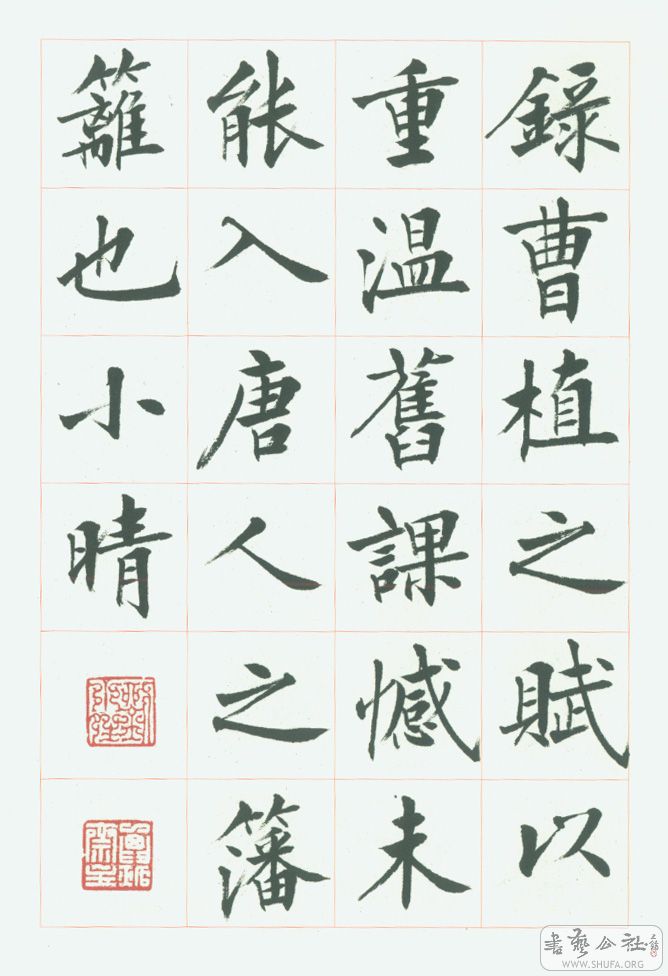 錄曹植之賦以
重温舊課憾未
能入唐人之籓
籬也小晴
書藝公社
WWW.SHUFA.ORG